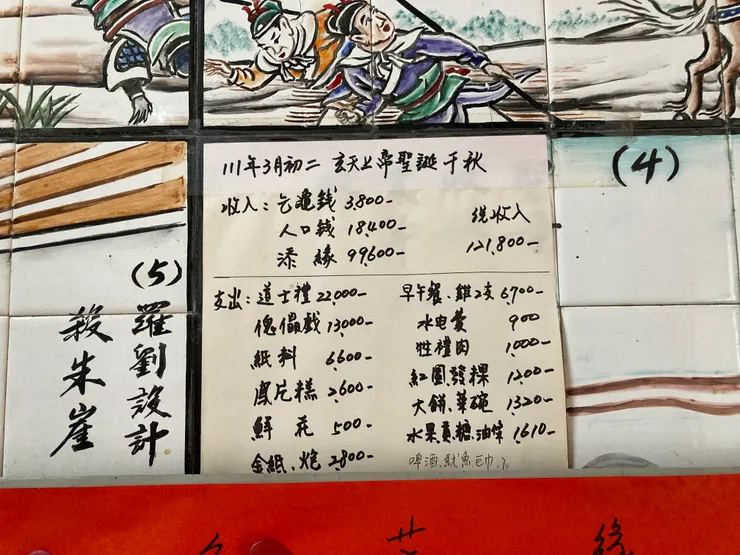 111年3月初二 玄天上帝聖誕千秋
收入：乞龜錢 3,800-
人口錢 18,400-
添緣 99,600-
總收入
121,800-
支出：道士禮 22,000-
傀儡戲 13,000-
紙料 6,600-
鳳片糕 2,600-
鮮花 500-
金紙、炮 2,800-
早午餐、雞2支 6,700-
水电費 900
牲禮肉 1,000-
紅圓、發粿 1,200-
大餅、菜碗 1,320-
水果、貢糖、油條 1,610-
啤酒、魷魚
(4)
(5)
羅劉設計
殺朱崖